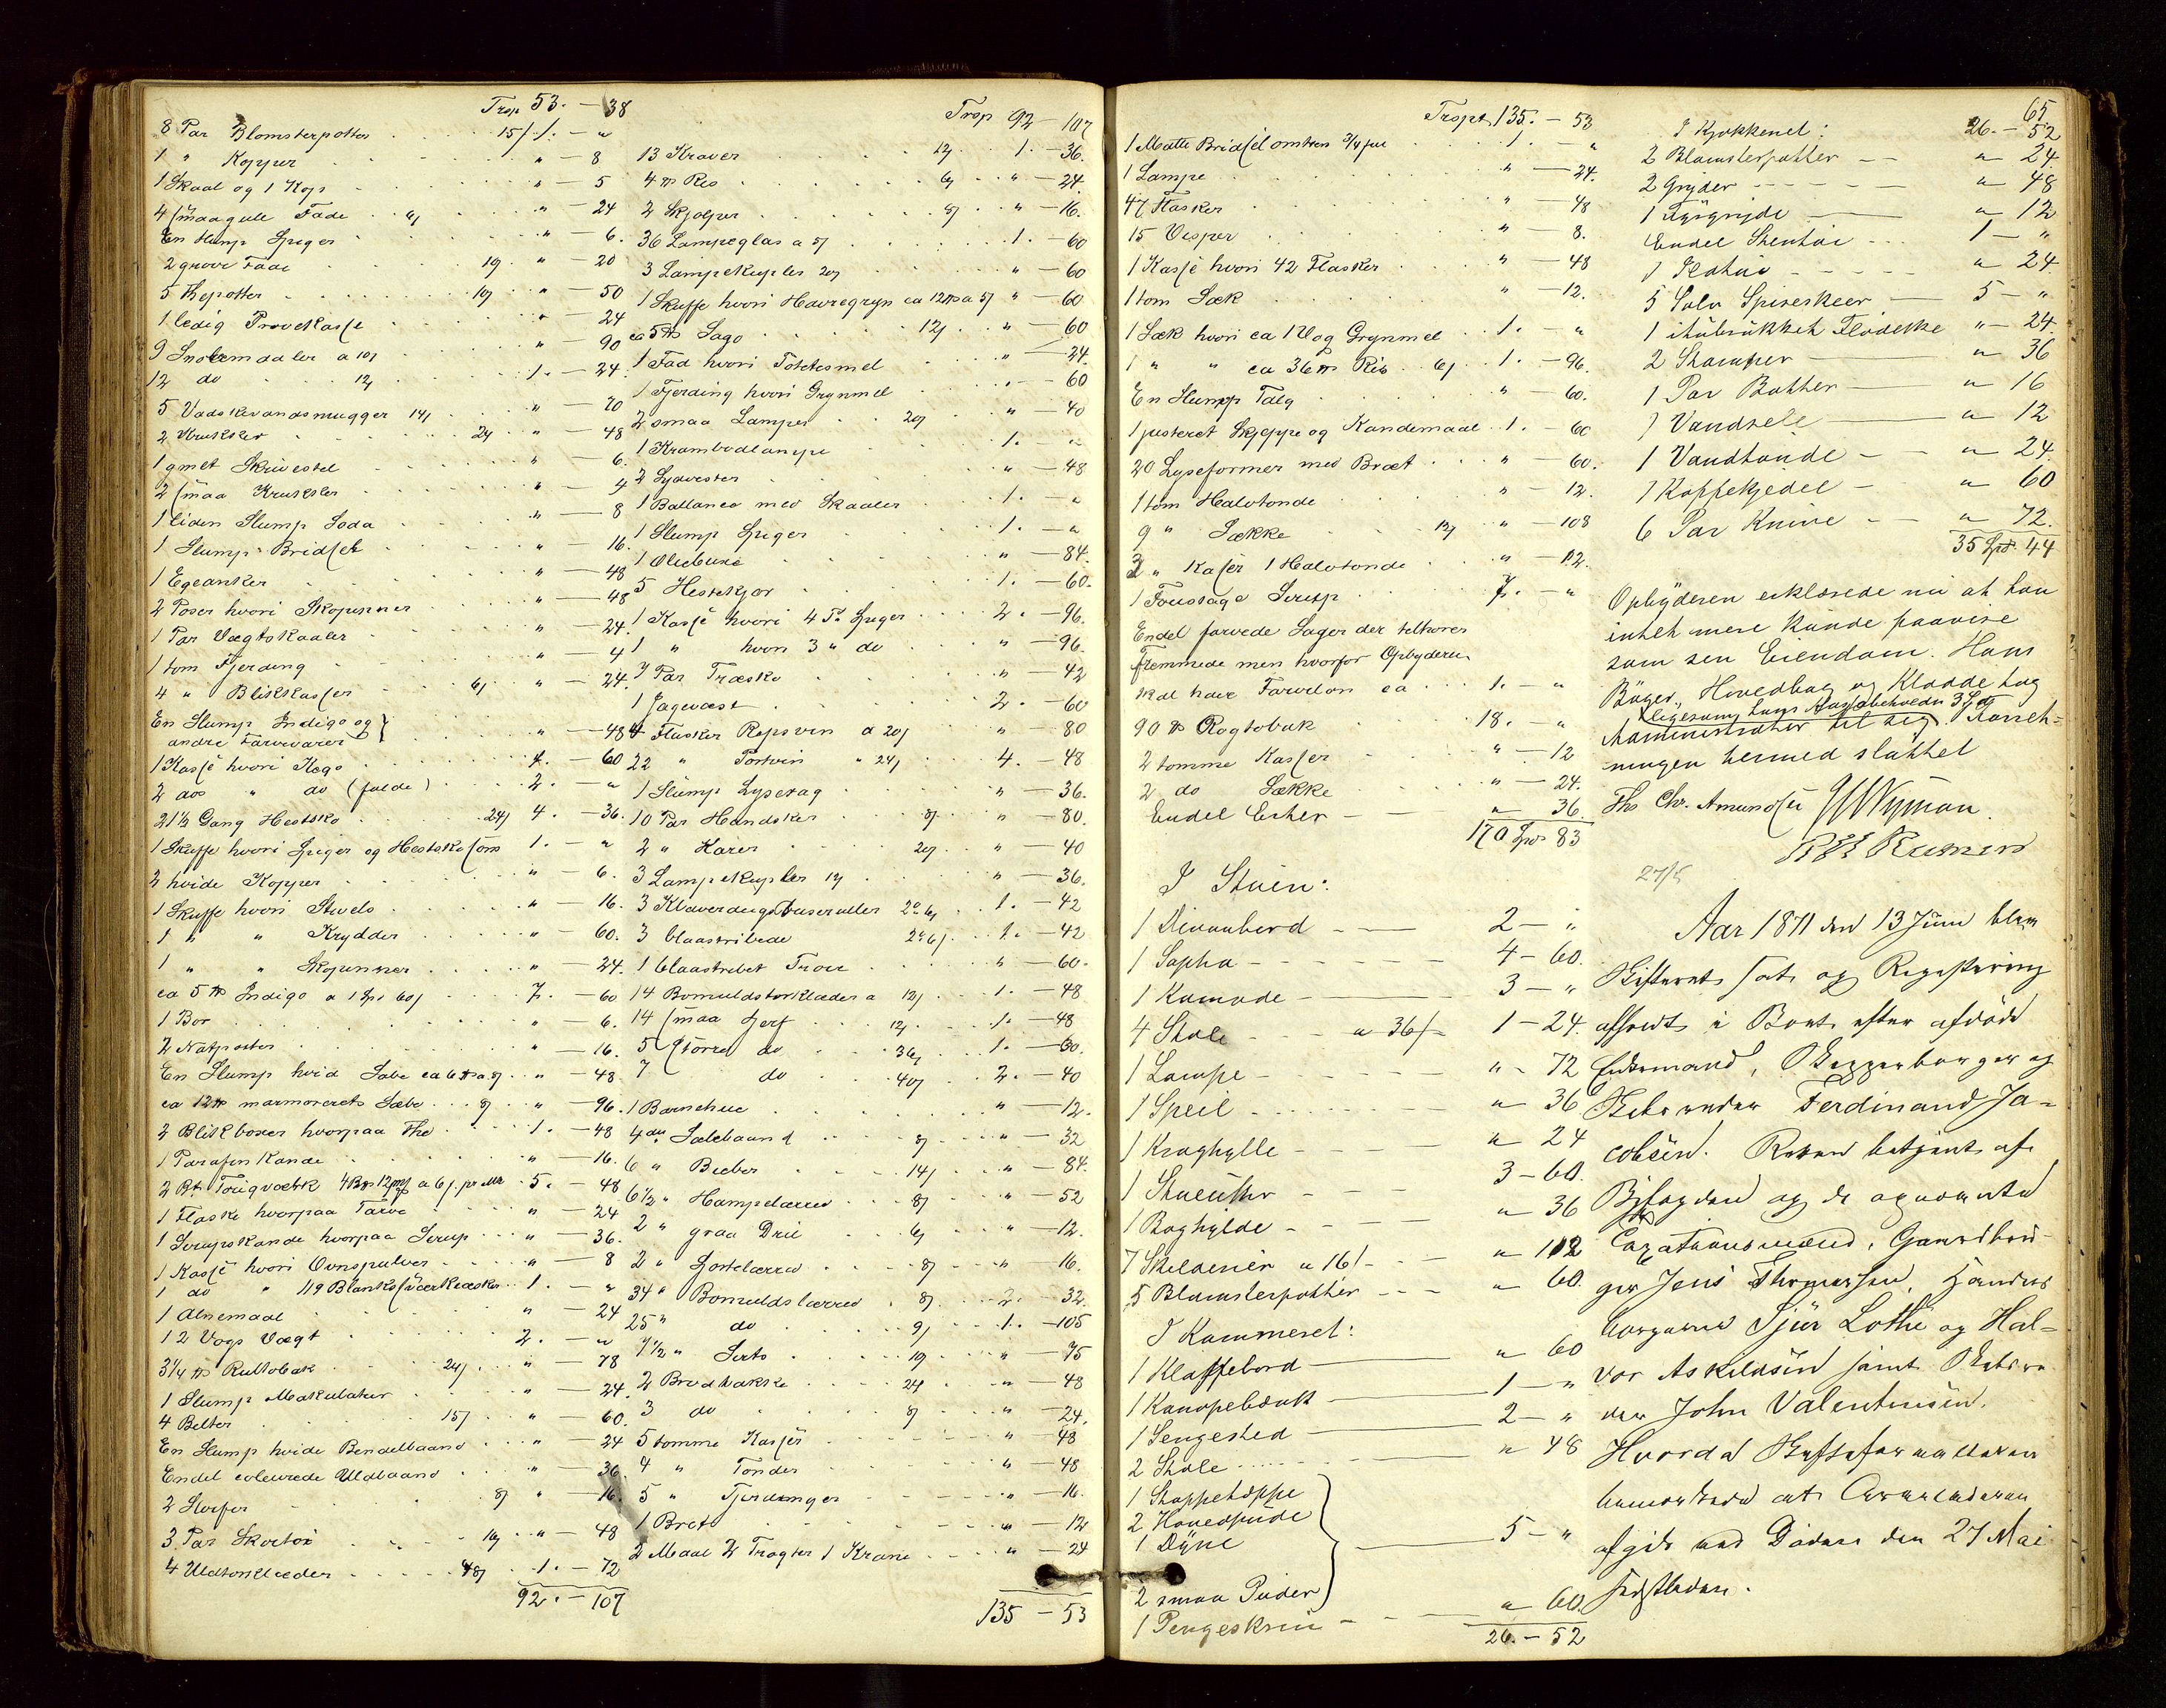 Trsp 53. — 38
8 Par Blomsterpotter 15/ 1. — "
1 " Kopper " — 8
1 Skaal og 1 Kop " — 5
4 smaa gule Fade 6/ " — 24
En Slump Spiger " — 6.
2 grove Fade 10/ " — 20
5 Thepotter 10/ " — 50
1 ledig Prøvekasse " — 24
9 a 10/ " — 90
12 do 12/ 1. — 24.
5 Vadskevandsmugger 14/ " — 70
2 Krukker 24/ " — 48
1 gmet Skrivestel " — 6.
2 smaa Krukker " — 4
1 liden Slump Soda " — 8
1 Slump Bridsel " — 16.
1 Egeanker " — 48
2 Poser hvori Skopinner " — 48
1 Par Vægtskaaler " — 24.
1 tom Fjerding " — 4
4 " Blikkasser 6/ " — 24.
En Slump Indigo og
andre Farvevarer " — 48
1 Kasse hvori Kogo 4. — 60
2 dos " do (fulde) 2. — "
21½ Gang Hestsko 24/ 4. — 36.
1 Skuffe hvori Spiger og Hestskosøm 1. — "
2 hvide Kopper " — 6.
1 Skuffe hvori Stivels " — 16.
1 " " Krydder " — 60.
1 " " Skopinner " — 24.
ca 5 ℔ Indigo a 1 Spd 60/ 7. — 60
1 Bor " — 6.
2 Natpotter " — 16.
En Slump hvid Sæbe ca 6 ℔ a 8/ " — 48
ca 12 ℔ marmoreret Sæbe 8/ " — 96.
2 Blikboxer hvorpaa The 1. — 48
1 Parafin Kande " — 16.
5. — 48
1 Flaske hvorpaa Farve " — 24
1 Serupskande hvorpaa Serup " — 36.
1 Kasse hvori Ovnspulver " — 8
1 do " 119 Blanksværtæsker 1. — "
1 Alnemaal " — 24
1 2 Vogs Vægt 2. — "
3¼ ℔ Rultobak 24/ " — 78
1 Slump Makulatur " — 24.
4 Belter 15/ " — 60.
En Slump hvide Bendelbaand " — 24
Endel coleurede Uldbaand " — 36.
2 Sløifer 8/ " — 16.
3 Par Skortøi 16/ " — 48
4 Uldtørklæder 48/ 1. — 72
92. — 107
Trsp 92 — 107
13 Kraver 12/ 1. — 36.
4 ℔ Ris 6/ " — 24.
2 Skjolper 8/ " — 16.
36 Lampeglas a 5/ 1. — 60
3 Lampekupler 20/ " — 60
1 Skuffe hvori Havregryn ca 12 ℔ a 5/ " — 60
ca 5 ℔ Sago 12/ " — 60
1 Fad hvori Potetesmel " — 24.
1 Fjerding hvori Grynmel " — 60
2 smaa Lamper 20/ " — 40
1 Krambodlampe 1. — "
2 Sydvester " — 48
1 Ballance med Skaaler 1. — "
1 Slump Spiger 1. — "
1 Oliebuxe " — 84.
5 Hestekjør 1. — 60.
1 Kasse hvori 4 Ps Spiger 2. — 96.
1 " hvori 3 " do " — 96.
7 Par Træsko " — 42
1 Jagevæst 2. — 60
4 Flasker Repsvin a 20/ " — 80
22 " Portvin " 24/ 4. — 48
1 Slump Lysevæg " — 36.
10 Par Handsker 8/ " — 80.
2 " Karer 20/ " — 40
3 Lampekupler 12/ " — 36.
3 1. — 42
3 blaastribede 1. — 42
1 blaastribet Troie " — 60.
14 Bomuldstørklæder a 12/ 1. — 48
14 smaa Skjerf 12/ 1. — 48
5 større do 36/ 1. — 60.
7 do 40/ 2. — 40
1 Barnehue " — 12.
4 al Sælebaand 8/ " — 32
6 " Beeber 14/ " — 84.
6½ " Hampelærred 8/ " — 52
2 " graa Dreil 6/ " — 12.
2 " Fortelærred 8/ " — 16.
34 " Bomuldslærred 8/ 2. — 32.
25 " do 9/ 1. — 105
7½ " Serts 10/ " — 75
2 Brødbakke 24/ " — 48
3 do 8/ " — 24.
5 tomme Kasser " — 48
4 " Tønder " — 48
5 " Fjerdinger " — 16.
1 Bret " — 12
2 Maal 2 Tragter 1 Krane " — 24
135 — 53
Trspt 135. — 53
1 Matte Bridsel omtren ¾ full 1. — "
1 Lampe " — 24.
47 Flasker " — 48
15 Vesper " — 8.
1 Kasse hvori 42 Flasker " — 48
1 tom Sæk " — 12.
1 Sæk hvori ca 1 Vog Grynmel 1. — "
1 " " ca 36 ℔ Ris 6/ 1. — 96.
En Slump Talg " — 60.
1 justeret Skjeppe og Kandemaal 1. — 60
20 Lyseformer med Bræt " — 60.
1 tom Halvtønde " — 12.
9 " Sække 12/ " — 108
3 " Kasser 1 Halvtønde " — 12.
1 Foustage Serup 7. — "
Endel farvede Sager der tilhører
Fremmede men hvorfor Opbyderen
skal have Farveløn ca 1. — "
90 ℔ Røgtobak 18. — "
2 tomme Kasser " — 12
2 do Sække " — 24.
Endel Esker " — 36.
170 Spd 83
I Stuen:
1 Divanbord 2 — "
1 Sopha 4 — 60.
1 Komode 3 — "
4 Stole a 36/ 1 — 24.
1 Lampe " — 72
1 Speil " — 36
1 Kraghylle " — 24
1 Stueuhr 3 — 60.
1 Boghylde " — 36
7 Skilderier a 16/ " — 112
5 Blomsterpotter " — 60.
I Kammeret:
1 Klaffebord " — 60
1 Kanapebænk 1 — "
1 Sengested 2 — "
2 Stole " — 48
1 Stoppetæppe
2 Hovedpude
1 Dÿne 5 — "
2 smaa Puder
1 Pengeskrin " — 60.
26. — 52
65
I Kjøkkenet: 26. — 52
2 Blomsterpotter " — 24
2 Grÿder " — 48
1 Tÿsgrÿde " — 12
Endel Stentøi 1 — "
1 " — 24
5 Sølv Spiseskeer 5 — "
1 itubrukket Flødeske " — 24.
2 Stamper " — 36
1 Par Bøtter " — 16
1 Vandsele " — 12
1 Vandtønde " — 24.
1 Kaffekjedel " — 60
6 Par Knive " — 72.
35 Spd 44
Opbÿderen erklærede nu at han
intet mere kunde paavise
som sin Eiendom. Hans
Bøger, Hovedbog og Kladde tog
ligesaa hans Kassebeholdn 3 Spd
Administrator til sig. Forret-
ningen hermed sluttet
Ths Chr. Amundsen Wyman.
27/5
Aar 1871 den 13 Juni blev
Skifteret sat og Registrering
afholdt i Boet efter afdøde
Enkemand, Skipperborger og
Ferdinand Ja-
cobsen. Retten betjent af
Bÿfogden og de opnævnte
Taxationsmænd, Gaardbor-
ger Jens Thomassen, Handels
borgerne Sjur Lothe og Hal-
vor Askildsen samt
John Valentinsen.
Hvorda Skifteforvalteren
bemærkede at Arveladeren
afgik ved Døden den 27 Mai
sidstleden.